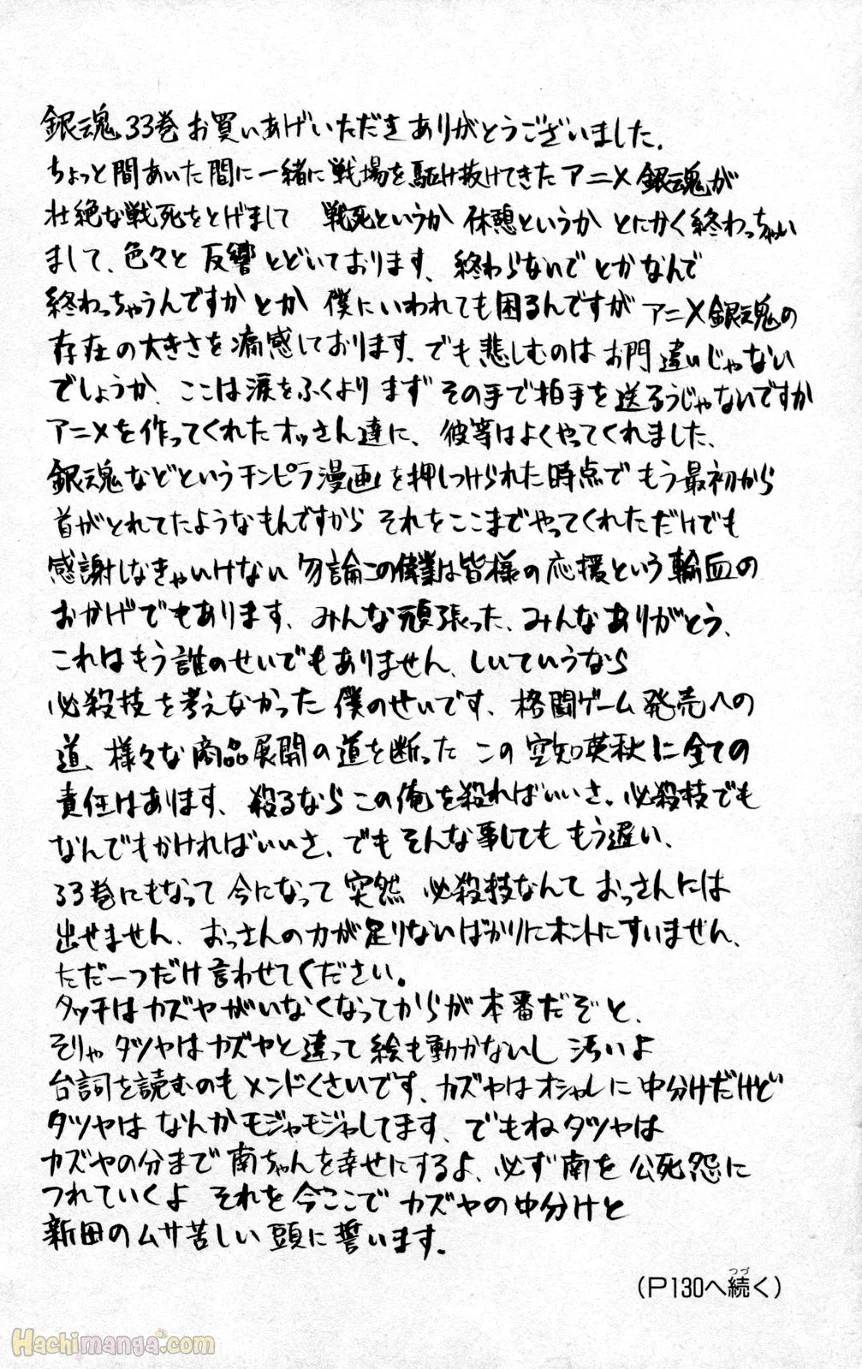 銀魂33巻お買いあげいただきありがとうございました。
ちょっと間あいた間に一緒に戦場を駆け抜けてきたアニメ銀魂が
壮絶な戦死をとげまして 戦死というか 休憩というか とにかく終わっちゃい
まして、色々と反響とどいております、終わらないでとかなんで
終わっちゃうんですかとか 僕にいわれても困るんですが アニメ銀魂の
存在の大きさを痛感しております、でも悲しむのはお門違いじゃない
でしょうか、ここは涙をふくより まず その手で拍手を送ろうじゃないですか
アニメを作ってくれたオッさん達に、彼等はよくやってくれました、
銀魂などというチンピラ漫画を押しつけられた時点で もう最初から
首がとれてたようなもんですから それをここまでやってくれただけでも
感謝しなきゃいけない 勿論この偉業は皆様の応援という輸血の
おかげでもあります、みんな頑張った、みんなありがとう、
これはもう誰のせいでもありません、しいていうなら
必殺技を考えなかった 僕のせいです、格闘ゲーム発売への
道、様々な商品展開の道を断った この空知英秋に全ての
責任はあります、殺るならこの俺を殺ればいいさ、必殺技でも
なんでもかければいいさ、でもそんな事しても もう遅い、
33巻にもなって 今になって 突然 必殺技なんて おっさんには
出せません、おっさんの力が足りないばかりにホントにすいません、
ただ一つだけ言わせてください。
タッチはカズヤがいなくなってからが本番だぞと、
そりゃタツヤはカズヤと違って絵も動かないし 汚いよ
台詞を読むのもメンドくさいです、カズヤはオシャレに中分けだけど
タツヤは なんかモジャモジャしてます、でもねタツヤは
カズヤの分まで南ちゃんを幸せにするよ、必ず南を公死怨に
つれていくよ それを今ここで カズヤの中分けと
新田のムサ苦しい頭に誓います。
(P130へ続く)
つづ
Hachimanga.com